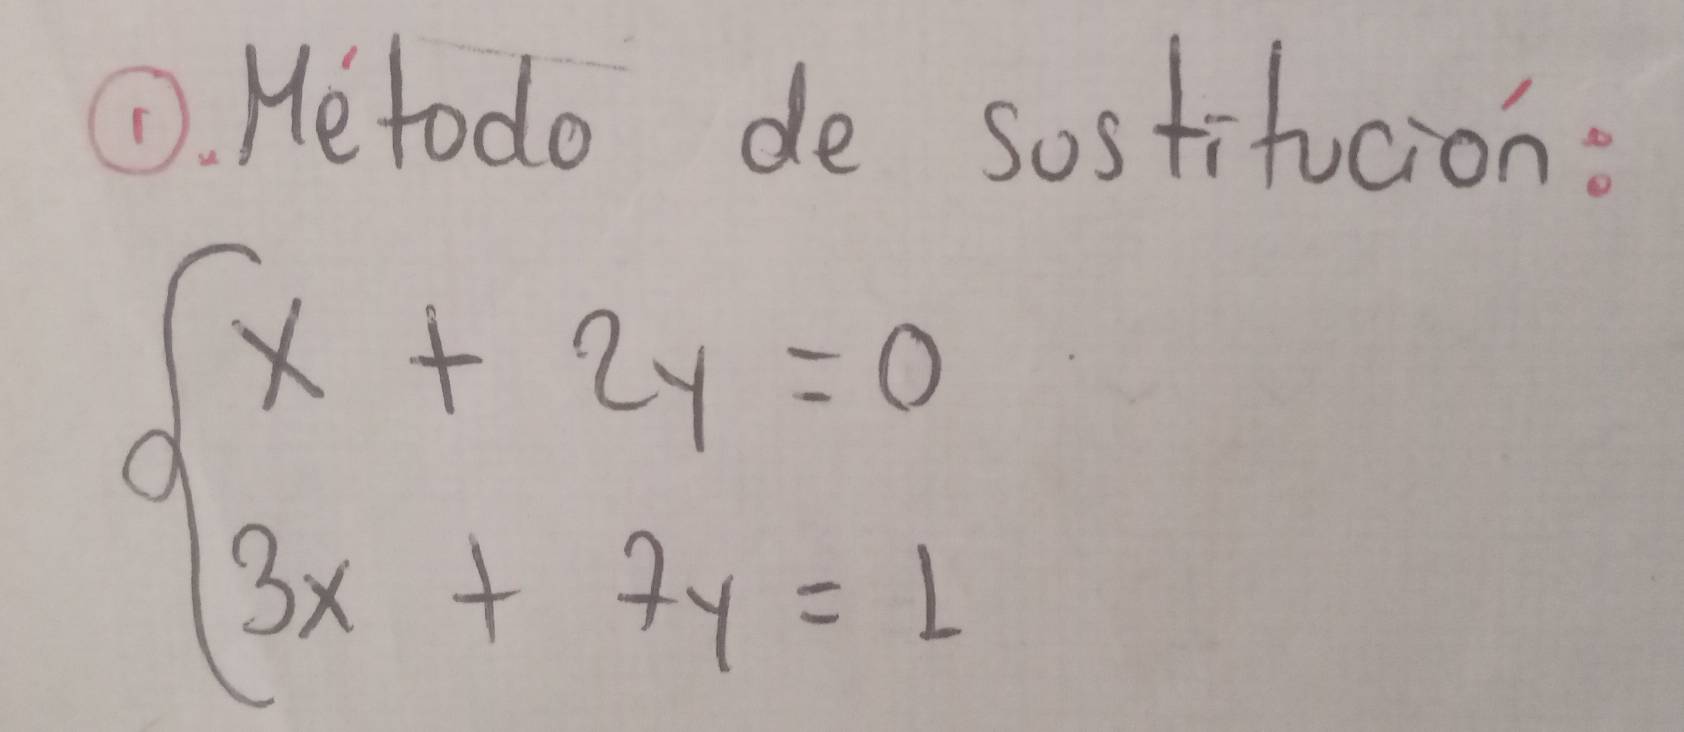 ①. Método de sustitución:
x + 2y = 0
3x + 7y = 1